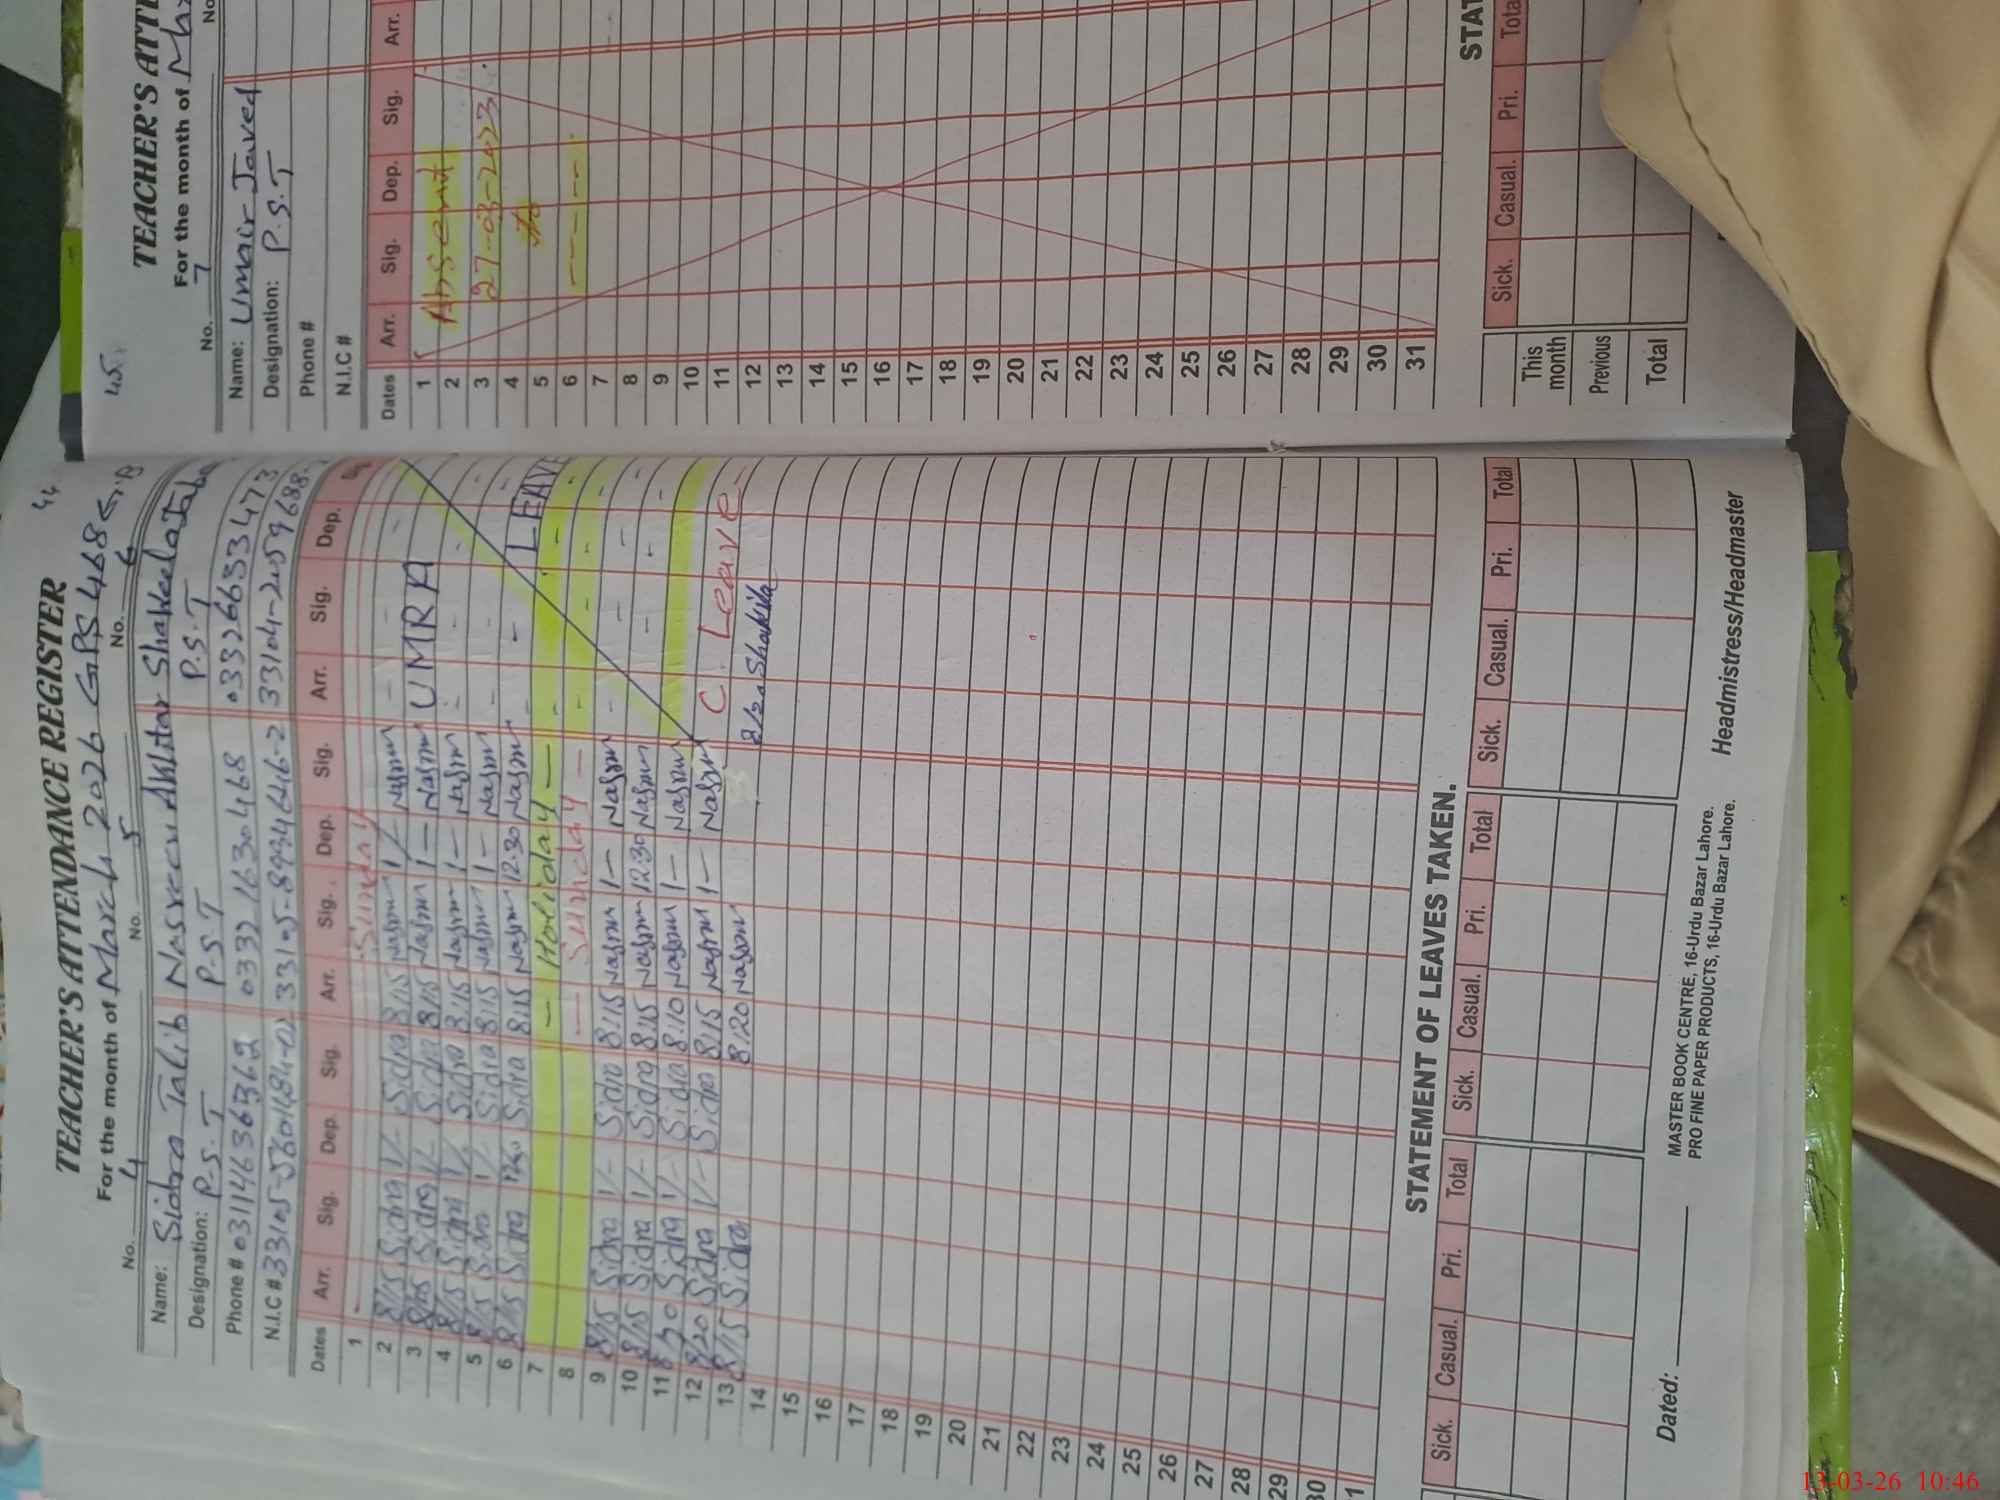 44
TEACHER'S ATTENDANCE REGISTER
For the month of March 2026 GPS 468 G.B
No. 4 No. 5 No. 6
Name: Sidra Talib Nasreen Akhtar Shakeela
Designation: P.S.T P.S.T P.S.T
Phone # 03114636362 0332 1630468 03326633473
N.I.C # 33105-5601684-0 33105-8944646-2 33104-2059688-
Dates Arr. Sig. Dep. Sig. Arr. Sig. Dep. Sig. Arr. Sig. Dep.
1 Sunday
2 8/15 Sidra 1/- Sidra 8:15 Nasreen 1/- Nasreen
3 8/15 Sidra 1/- Sidra 8:15 Nasreen 1- Nasreen UMRA
4 8/15 Sidra 1/- Sidra 8:15 Nasreen 1- Nasreen
5 8/15 Sidra 1/- Sidra 8:15 Nasreen 1- Nasreen
6 8/15 Sidra Sidra 8:15 Nasreen 12:30 Nasreen LEAVE
7 — Holiday —
8 — Sunday —
9 8/15 Sidra 1/- Sidra 8:15 Nasreen 1- Nasreen
10 8/15 Sidra 1/- Sidra 8:15 Nasreen 12:30 Nasreen
11 8/20 Sidra 1/- Sidra 8:10 Nasreen 1- Nasreen
12 8/20 Sidra 1/- Sidra 8:15 Nasreen 1- Nasreen C. Leave
13 8/15 Sidra 8:20 Nasreen 8/20 Shakila
14
15
16
17
18
19
20
21
22
23
24
25
26
27
28
29
30
1
STATEMENT OF LEAVES TAKEN.
Sick. Casual. Pri. Total Sick. Casual. Pri. Total Sick. Casual. Pri. Total
Dated:
MASTER BOOK CENTRE, 16-Urdu Bazar Lahore.
PRO FINE PAPER PRODUCTS, 16-Urdu Bazar Lahore.
Headmistress/Headmaster
45
TEACHER'S ATTE
For the month of
No. 7 No
Name: Umair Javed
Designation: P.S.T
Phone #
N.I.C #
Dates Arr. Sig. Dep. Sig. Arr.
1 Absent
2
3 27-03-2023
4 to
5
6 -----
7
8
9
10
11
12
13
14
15
16
17
18
19
20
21
22
23
24
25
26
27
28
29
30
31
STAT
Sick. Casual. Pri. Tota
This month
Previous
Total
13-03-26 10:46